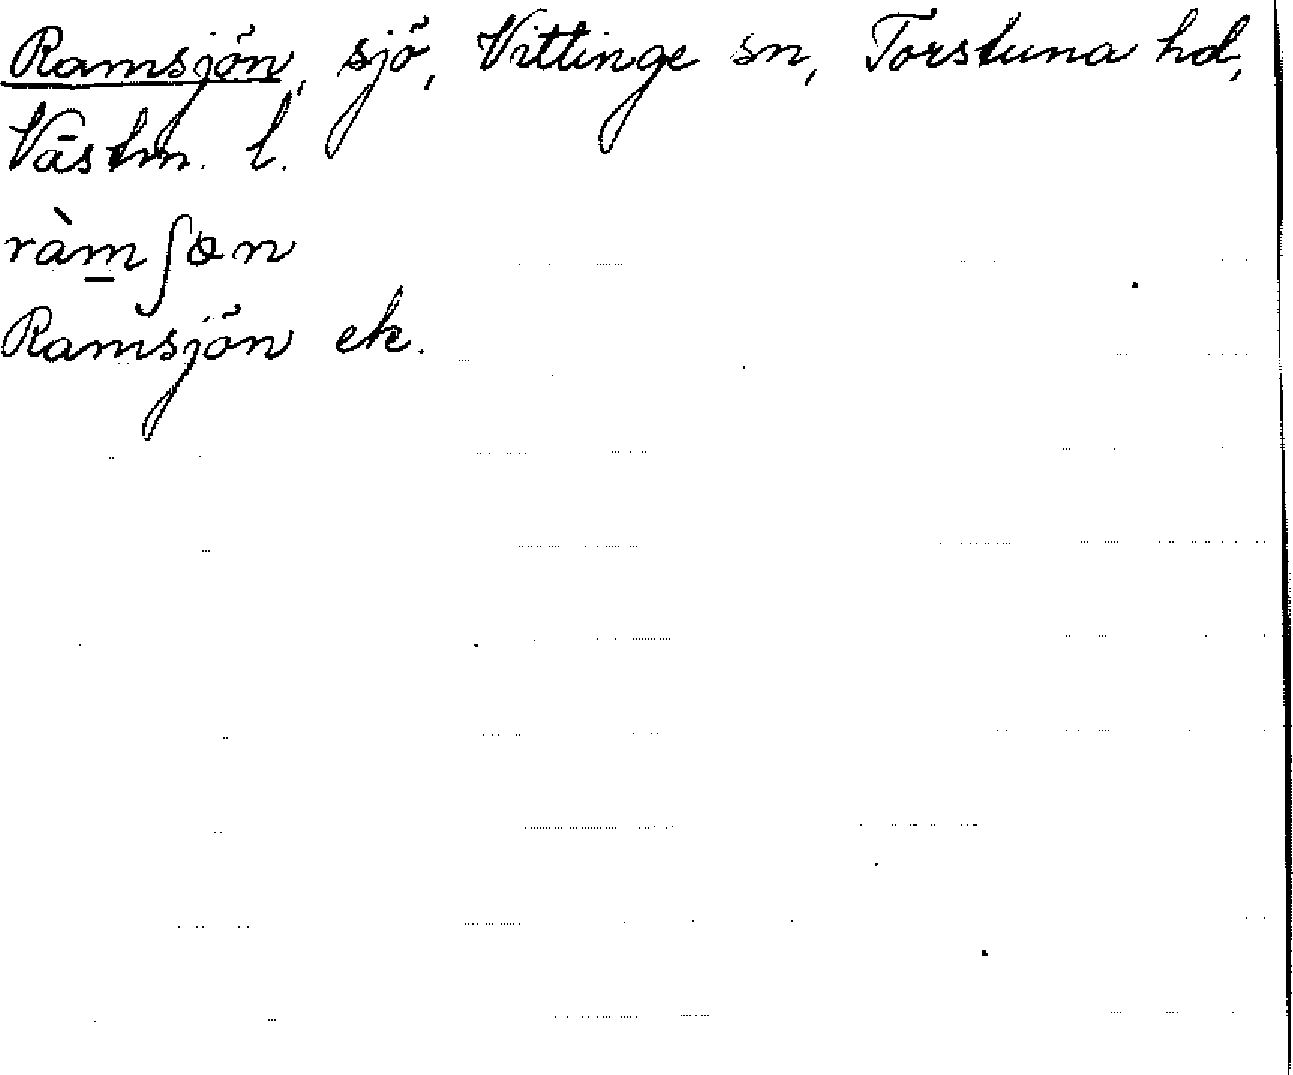 Ramsjön, sjö, Vittinge sn, Torstuna hd,
Västm. l.
ràm̲ʃɵn
Ramsjön ek.